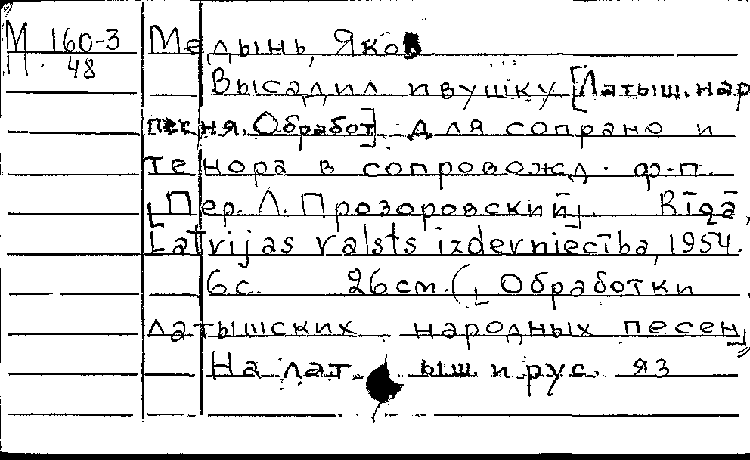 М 160-3
П. 48
Медынь, Яков
Высадил ивушку [Латыш.нар
песня. Обработ]. для сопрано и
тенора в сопровожд. ф-п.
[Пер. Л. Прозоровский]. Rīgā,
Latvijas valsts izdevniecība, 1954.
6 с. 26 см. ([Обработки
латышских народных песен]
На латыш. и рус. яз